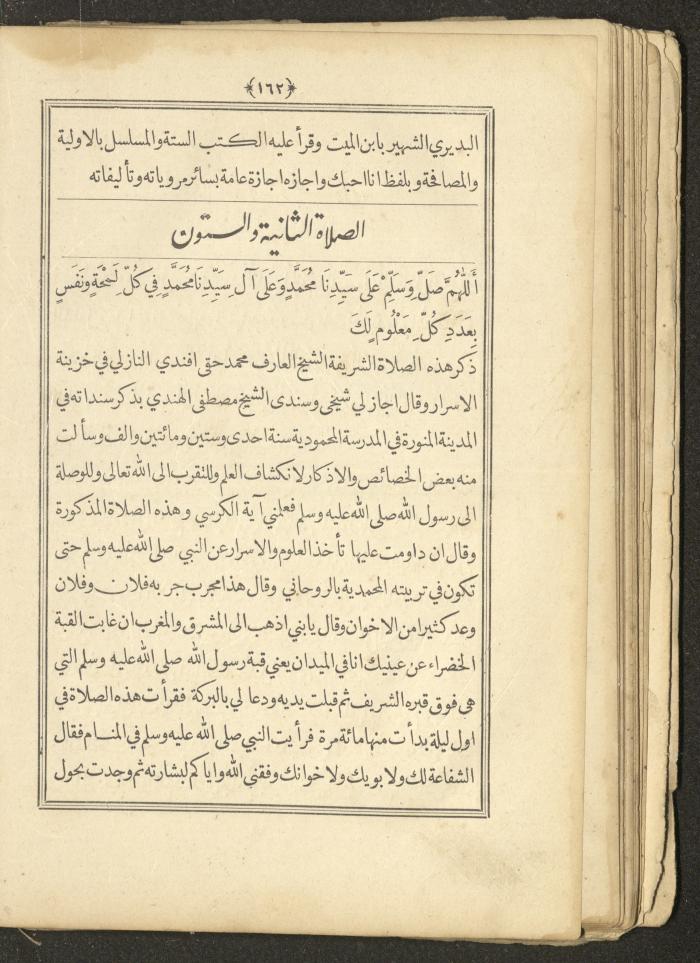 ﴿١٦٢﴾
البديري الشهير بابن الميت وقرأ عليه الكتب الستة والمسلسل بالاولية
والمصافحة وبلفظ انا احبك واجازه اجازة عامة بسائر مروياته وتأليفاته
الصلاة الثانية والستون
أَللّٰهُمَّ صَلِّ وَسَلِّمْ عَلَى سَيِّدِنَا مُحَمَّدٍ وَعَلَى آلِ سَيِّدِنَا مُحَمَّدٍ فِي كُلِّ لَمْحَةٍ وَنَفَسٍ
بِعَدَدِ كُلِّ مَعْلُومٍ لَكَ
ذكر هذه الصلاة الشريفة الشيخ العارف محمد حقى افندي النازلي في خزينة
الاسرار وقال اجاز لي شيخى وسندى الشيخ مصطفى الهندي بذكر سنداته في
المدينة المنورة في المدرسة المحمودية سنة احدى وستين ومائتين والف وسألت
منه بعض الخصائص والاذكار لانكشاف العلم وللتقرب الى الله تعالى وللوصلة
الى رسول الله صلى الله عليه وسلم فعلمني آية الكرسي وهذه الصلاة المذكورة
وقال ان داومت عليها تأخذ العلوم والاسرار عن النبي صلى الله عليه وسلم حتى
تكون في تربيته المحمدية بالروحاني وقال هذا مجرب جر به فلان وفلان
وعد كثيرا من الاخوان وقال يابني اذهب الى المشرق والمغرب ان غابت القبة
الخضراء عن عينيك انا في الميدان يعني قبة رسول الله صلى الله عليه وسلم التي
هي فوق قبره الشريف ثم قبلت يديه ودعا لي بالبركة فقرأت هذه الصلاة في
اول ليلة بدأت منها مائة مرة فرأيت النبي صلى الله عليه وسلم في المنام فقال
الشفاعة لك ولابويك ولاخوانك وفقني الله واياكم لبشارته ثم وجدت بحول